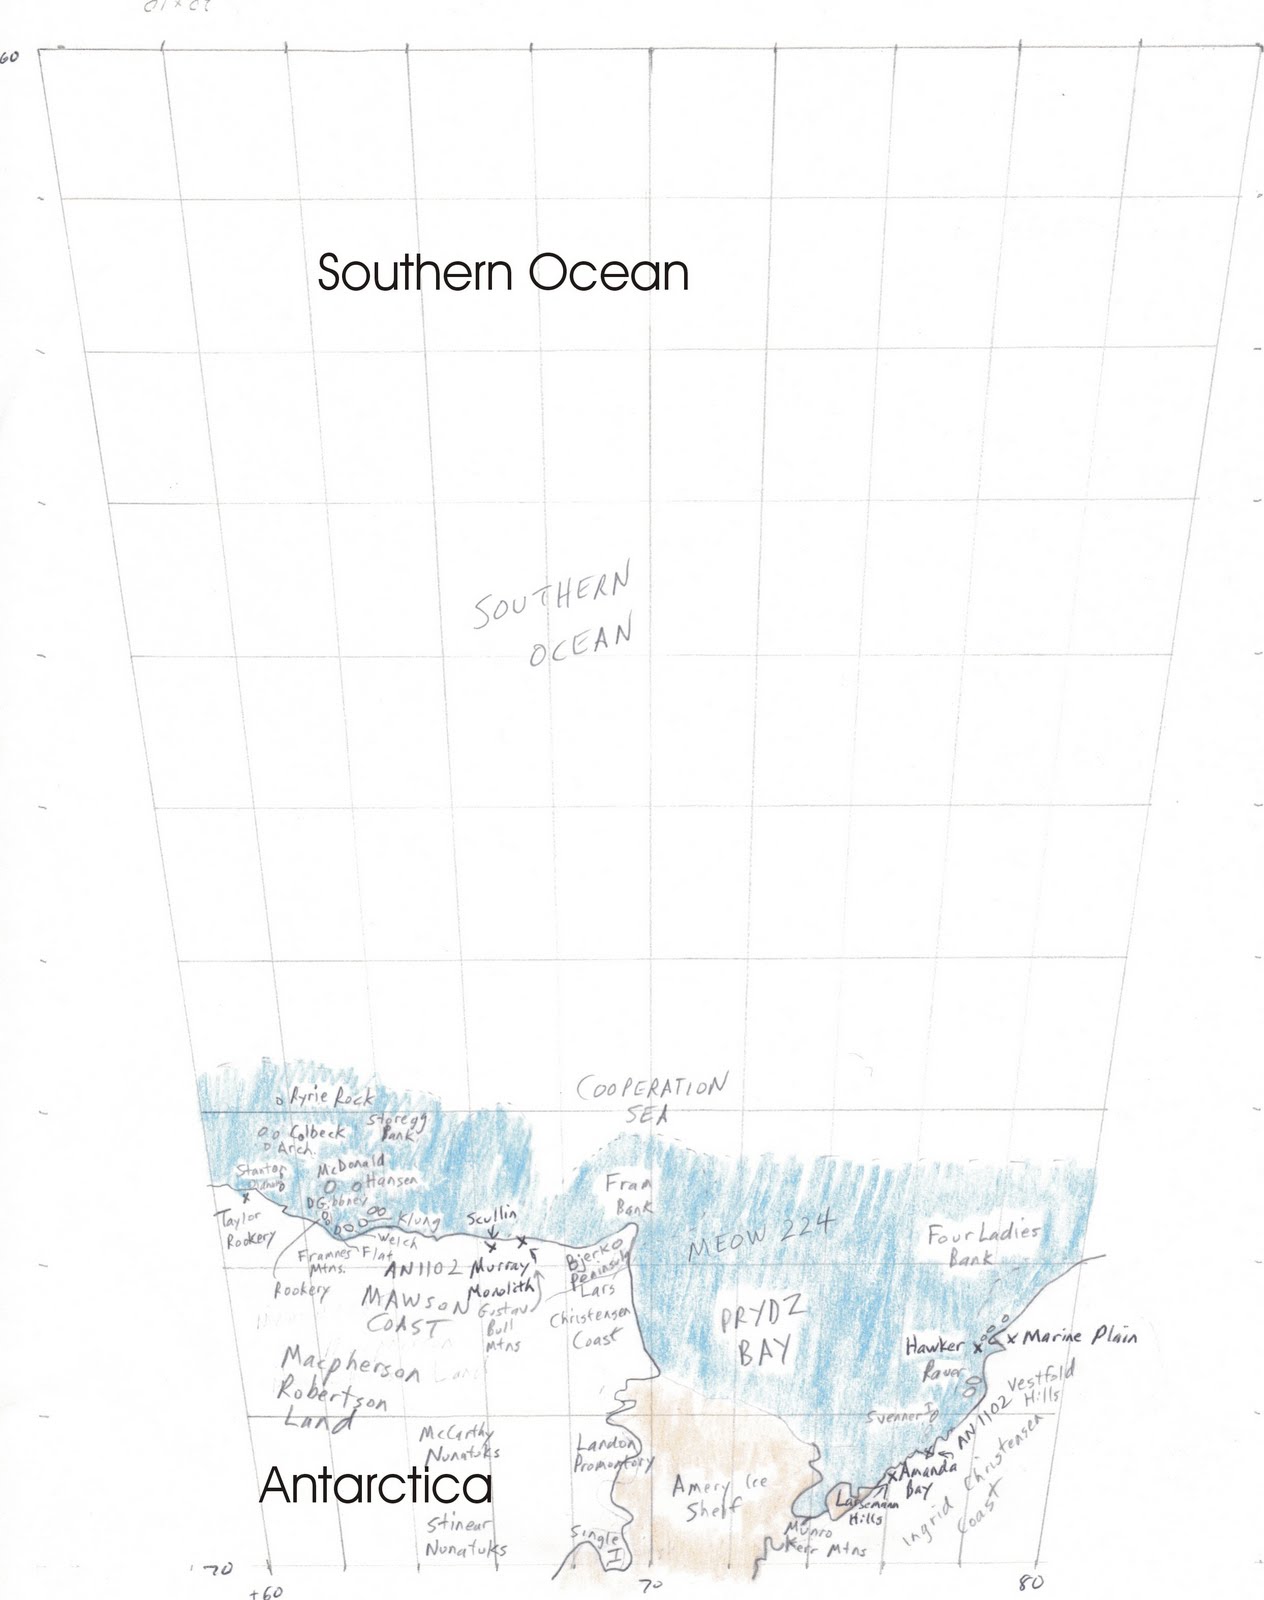 60
Southern Ocean
SOUTHERN
OCEAN
COOPERATION
SEA
Ryrie Rock
Storegg
Bank
Colbeck
Arch.
McDonald
Hansen
Stanton
Fram
Bank
Taylor
Rookery
Klung
Welch
Scullin
Framnes
Mtns.
Flat
Rookery
AN1102
Murray
Monolith
MAWSON
COAST
Gustav
Bull
Mtns
Bjerko
Peninsula
Lars
Christensen
Coast
MEOW 224
Four Ladies
Bank
PRYDZ
BAY
Hawker
Marine Plain
Rauer
Vestfold
Hills
Svenner I
AN1102
Macpherson
Robertson
Land
McCarthy
Nunatuks
Landon
Promontory
Amery Ice
Shelf
Amanda
Bay
Larsemann
Hills
Ingrid Christensen
Coast
Antarctica
Stinear
Nunatuks
Single
I
Munro
Kerr Mtns
-70
+60
70
80